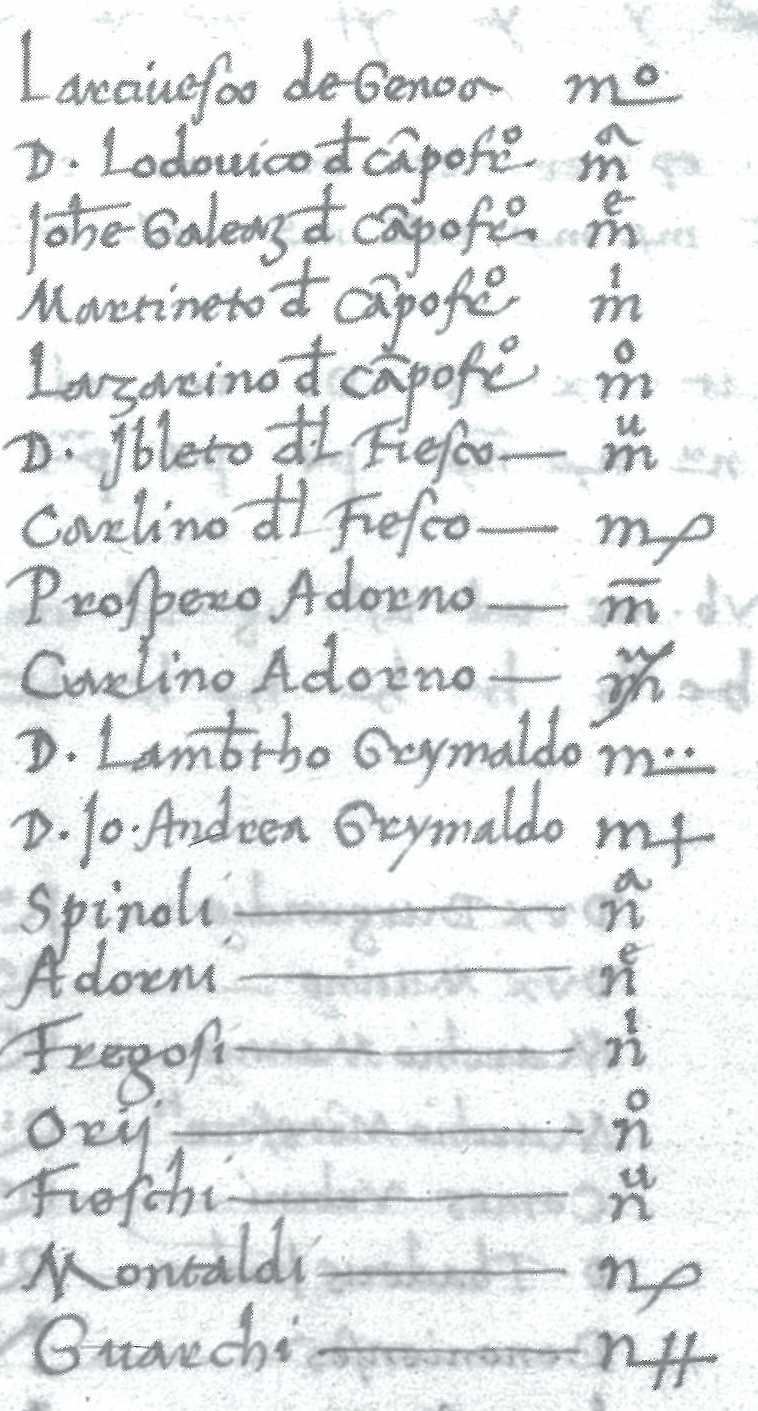 Larciuesco de Genoa m°
D. Lodouico đ cāpofr° mᵃ
Johe Galeaz đ cāpofr° mᵉ
Martineto đ cāpofr° mⁱ
Lazarino đ cāpofr° mᵒ
D. Jbleto đl Fiesco — mᵘ
Carlino đl Fiesco — m
Prospero Adorno — m̄
Carlino Adorno — m
D. Lambtho Grymaldo m..
D. Jo. Andrea Grymaldo m+
Spinoli — nᵃ
Adorni — nᵉ
Fregosi — nⁱ
Orij — nᵒ
Fieschi — nᵘ
Montaldi — n
Guarchi — n#